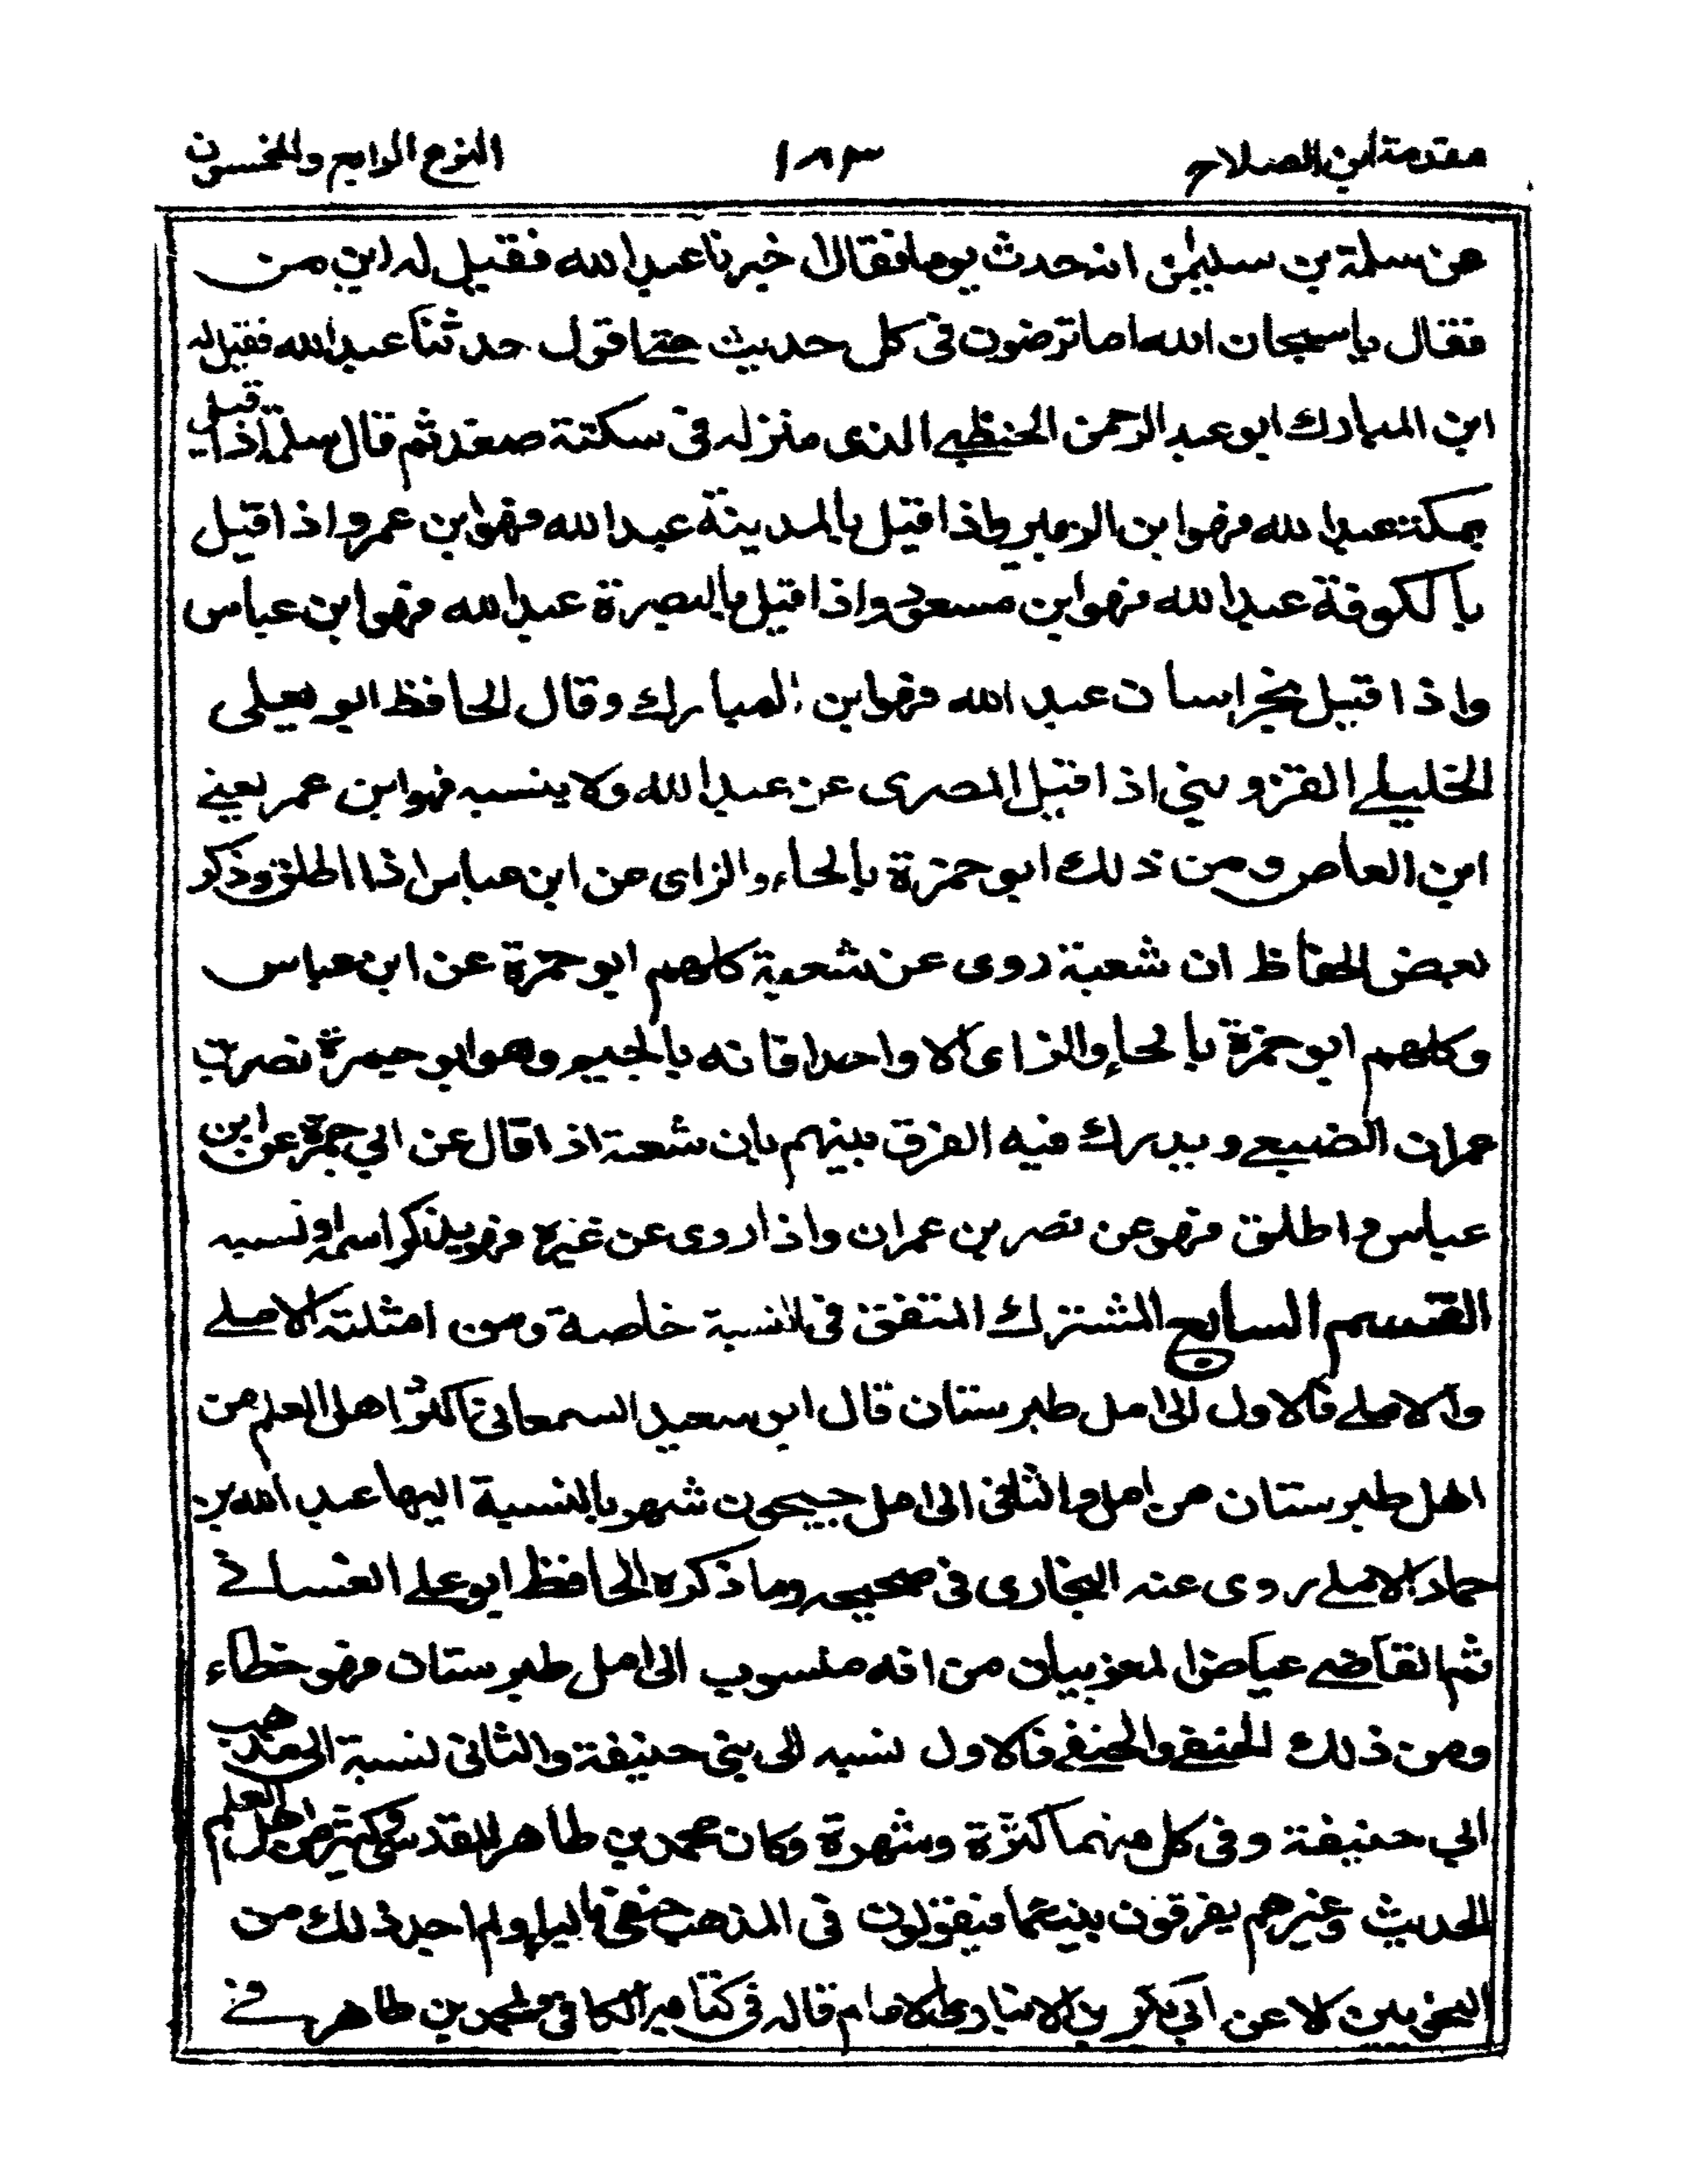 مقدمة ابن الصلاح ١٨٣ النوع الرابع والخمسون
عن سلمة بن سليمٰن انه حدث يوما فقال اخبرنا عبد الله فقيل له ابن من
فقال يا سبحان الله اما ترضون فى كل حديث حتى اقول حدثنا عبد الله فقيل له
ابن المبارك ابو عبد الرحمن الحنظلے الذى منزله فى سكة صغد ثم قال سلمة اذا قيل
بمكة عبد الله فهو ابن الزبير واذا قيل بالمدينة عبد الله فهو ابن عمر واذا قيل
بالكوفة عبد الله فهو ابن مسعود واذا قيل بالبصرة عبد الله فهو ابن عباس
واذا قيل بخراسان عبد الله فهو ابن المبارك وقال الحافظ ابو يعلى
الخليلے القزوينى اذا قيل المصرى عن عبد الله ولا ينسبه فهو ابن عمر يعنے
ابن العاص ومن ذلك ابو حمزة بالحاء والزاى عن ابن عباس اذا اطلق وذكر
بعض الحفاظ ان شعبة روى عن شعبة كلهم ابو حمزة عن ابن عباس
وكلهم ابو حمزة بالحاء والزاى الا واحدا فانه بالجيم وهو ابو جمرة نصر بن
عمران الضبعے ويدرك فيه الفرق بينهم بان شعبة اذا قال عن ابي جمرة عن ابن
عباس واطلق فهو عن نصر بن عمران واذا روى عن غيره فهو يذكر اسمه او نسبه
القسم السابع المشترك المتفق فى النسبة خاصة ومن امثلته الاملے
والاملے فالاول الى امل طبرستان قال ابو سعيد السمعانى اكثر اهل العلم من
اهل طبرستان من امل والثانى الى امل جيحون شهر بالنسبة اليها عبد الله بن
حماد الاملے روى عنه البخارى فى صحيحه وما ذكره الحافظ ابو علے الغسانے
ثم القاضے عياض المغربيان من انه منسوب الى امل طبرستان فهو خطاء
ومن ذلك الحنفے والحنفے فالاول نسبه الى بنى حنيفة والثانى نسبة الى مذهب
ابي حنيفة وفى كل منهما كثرة وشهرة وكان محمد بن طاهر المقدسى وكثير من اهل العلم
الحديث وغيرهم يفرقون بينهما فيقولون فى المذهب حنيفى بالياء ولم اجد ذلك من
النحويين الا عن ابي بكر بن الانبارى الامام قاله فى كتابه الكافى ولمحمد بن طاهر فے